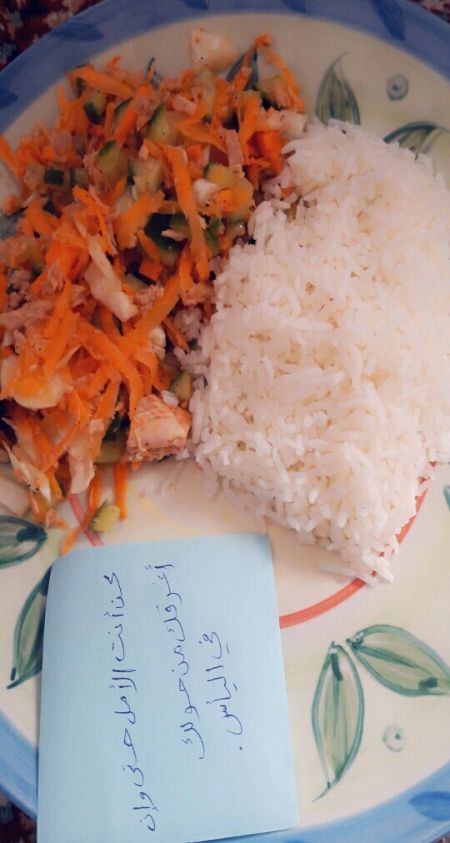 كن أنت الأمل حتى وإن
أغرقك من حولك
في اليأس.